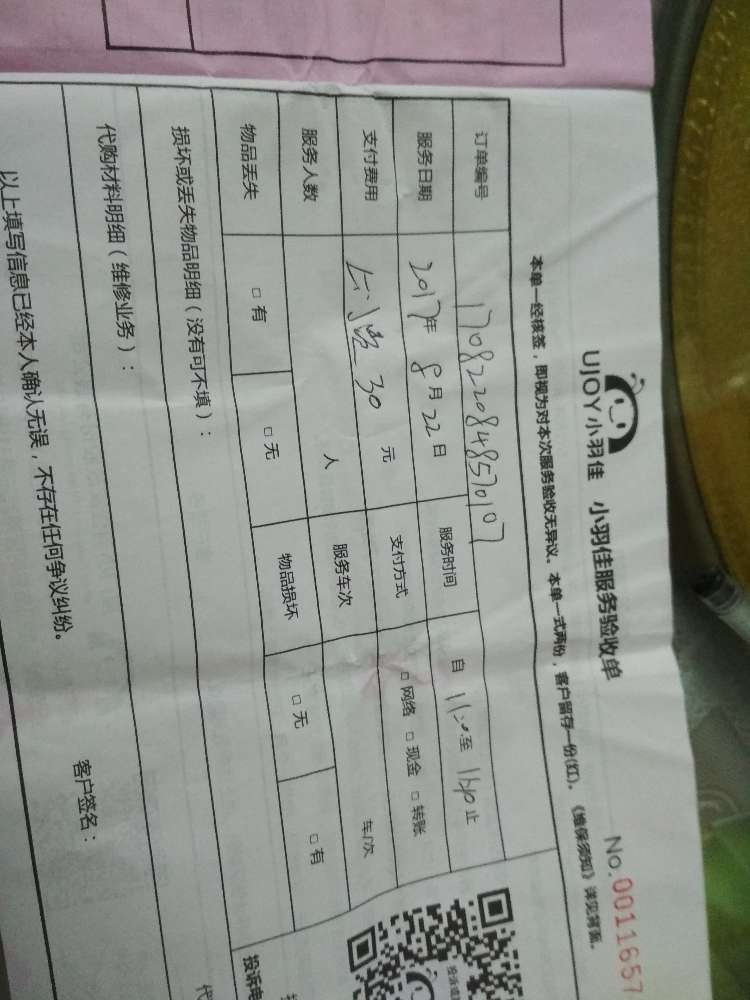 UJOY小羽佳 小羽佳服务验收单 No.0011657
本单一经核签，即视为对本次服务验收无异议。本单一式两份，客户留存一份(红)。《维保须知》详见背面。
订单编号 1708220848570107
服务日期 2017年8月22日 服务时间 自 至 止
支付费用 30元 支付方式 □网络 □现金 □转账
服务人数 人 服务车次 车/次
物品丢失 □有 □无 物品损坏 □无 □有
损坏或丢失物品明细（没有可不填）：
代购材料明细（维修业务）：
以上填写信息已经本人确认无误，不存在任何争议纠纷。
客户签名：
投诉电